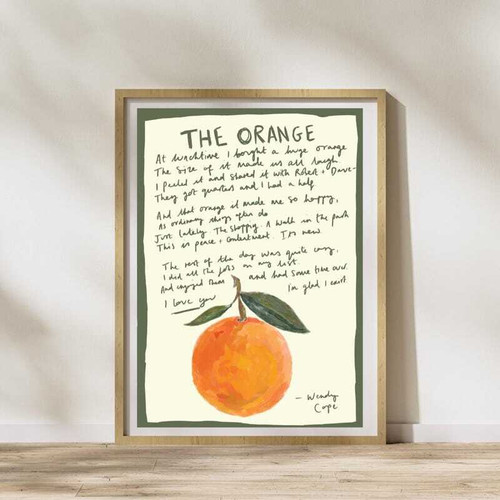 THE ORANGE
At lunchtime I bought a huge orange
The size of it made us all laugh.
I peeled it and shared it with Robert & Dave-
They got quarters and I had a half.
And that orange it made me so happy,
As ordinary things often do
Just lately. The shopping. A walk in the park
This is peace & contentment. It's new.
The rest of the day was quite easy,
I did all the jobs on my list.
And enjoyed them and had some time over.
I love you I'm glad I exist.
- Wendy
Cope